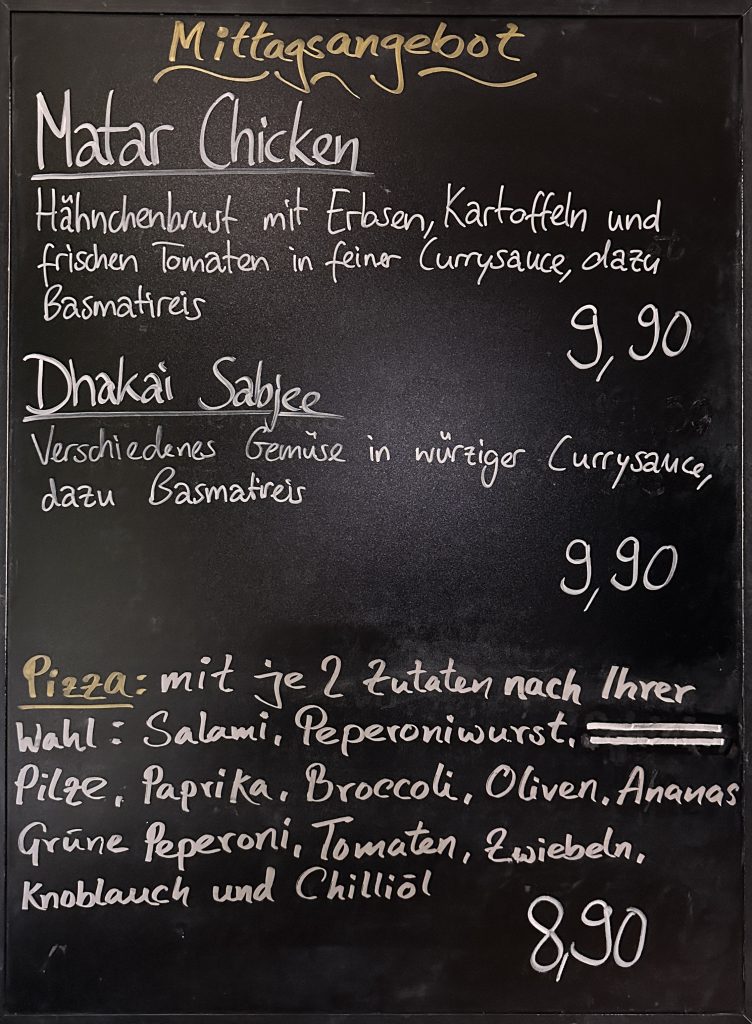 Mittagsangebot
Matar Chicken
Hähnchenbrust mit Erbsen, Kartoffeln und
frischen Tomaten in feiner Currysauce, dazu
Basmatireis
9,90
Dhakai Sabjee
Verschiedenes Gemüse in würziger Currysauce,
dazu Basmatireis
9,90
Pizza: mit je 2 Zutaten nach Ihrer
Wahl: Salami, Peperoniwurst,
Pilze, Paprika, Broccoli, Oliven, Ananas
Grüne Peperoni, Tomaten, Zwiebeln,
Knoblauch und Chilliöl
8,90